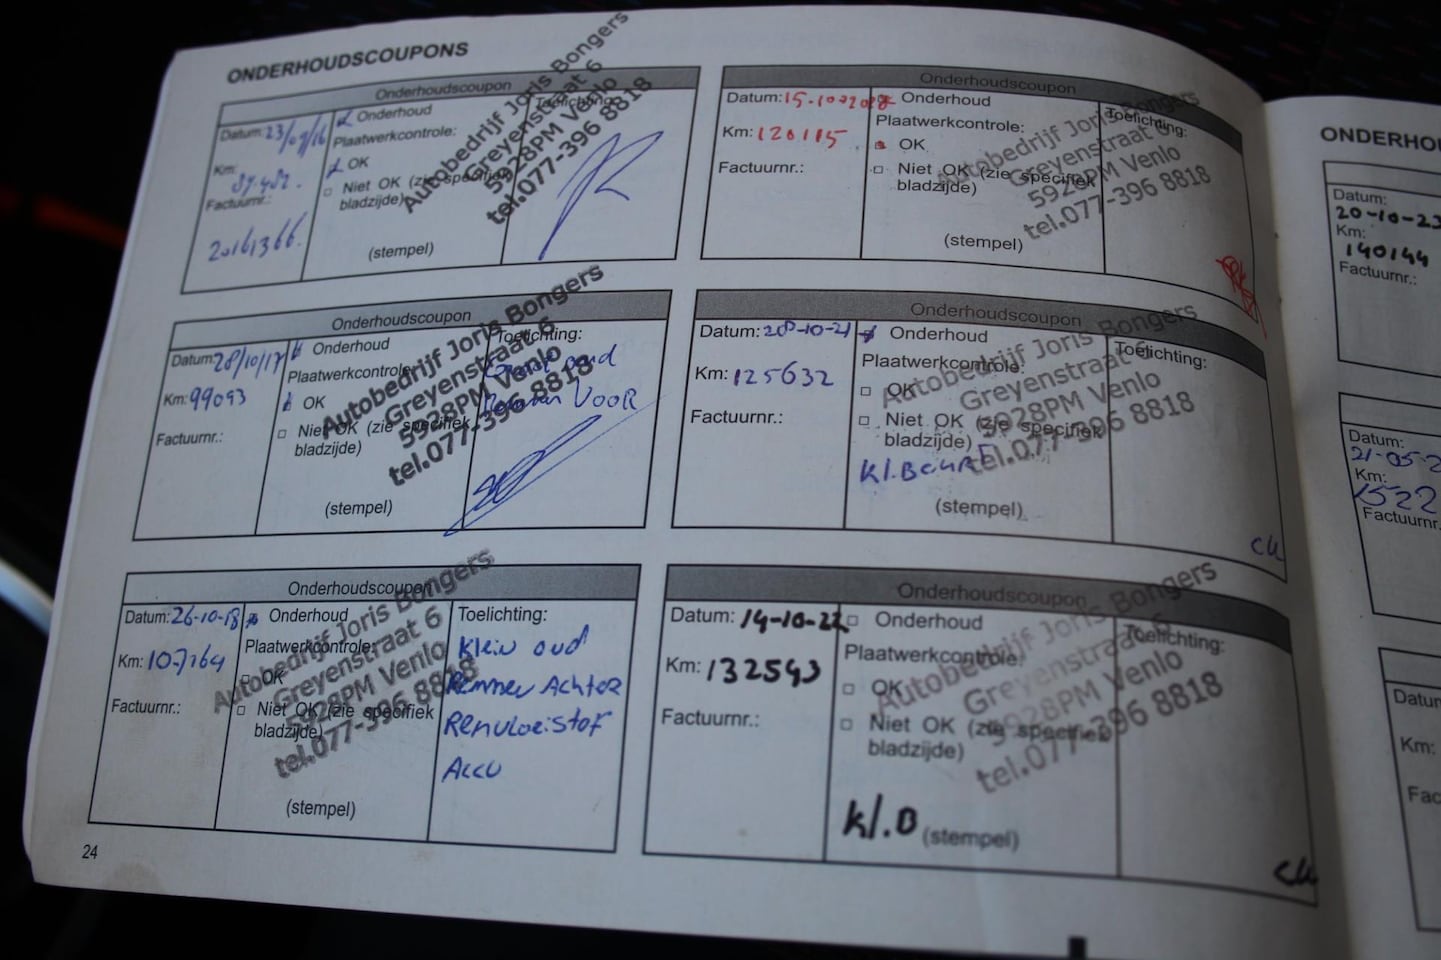 ONDERHOUDSCOUPONS
Onderhoudscoupon
Datum: 23/09/16
Onderhoud
Plaatwerkcontrole:
OK
Niet OK (zie specifiek
bladzijde)
(stempel)
Km:
Factuurnr.:
20161366.
Toelichting:
Autobedrijf Joris Bongers
Greyenstraat 6
5928PM Venlo
tel.077-396 8818
Onderhoudscoupon
Datum: 28/10/17
Km: 99093
Factuurnr.:
Onderhoud
Plaatwerkcontrole:
OK
Niet OK (zie specifiek
bladzijde)
(stempel)
Toelichting:
oud
VOOR
Autobedrijf Joris Bongers
Greyenstraat 6
5928PM Venlo
tel.077-396 8818
Onderhoudscoupon
Datum: 26-10-18
Km: 107164
Factuurnr.:
Onderhoud
Plaatwerkcontrole:
OK
Niet OK (zie specifiek
bladzijde)
(stempel)
Toelichting:
Klein oud
Remmen Achter
Remvloeistof
Accu
Autobedrijf Joris Bongers
Greyenstraat 6
5928PM Venlo
tel.077-396 8818
24
Onderhoudscoupon
Datum: 15-10-20
Km: 120115
Factuurnr.:
Onderhoud
Plaatwerkcontrole:
OK
Niet OK (zie specifiek
bladzijde)
(stempel)
Toelichting:
Autobedrijf Joris Bongers
Greyenstraat 6
5928PM Venlo
tel.077-396 8818
Onderhoudscoupon
Datum: 20-10-21
Km: 125632
Factuurnr.:
Onderhoud
Plaatwerkcontrole:
OK
Niet OK (zie specifiek
bladzijde)
Kl.Beurt
(stempel)
Toelichting:
Autobedrijf Joris Bongers
Greyenstraat 6
5928PM Venlo
tel.077-396 8818
Onderhoudscoupon
Datum: 14-10-22
Km: 132593
Factuurnr.:
Onderhoud
Plaatwerkcontrole:
OK
Niet OK (zie specifiek
bladzijde)
kl.B
(stempel)
Toelichting:
Autobedrijf Joris Bongers
Greyenstraat 6
5928PM Venlo
tel.077-396 8818
ONDERHOU
Datum:
20-10-23
Km:
140144
Factuurnr.:
Datum:
21-05-2
Km:
1522
Factuurnr.
Datum
Km:
Fac